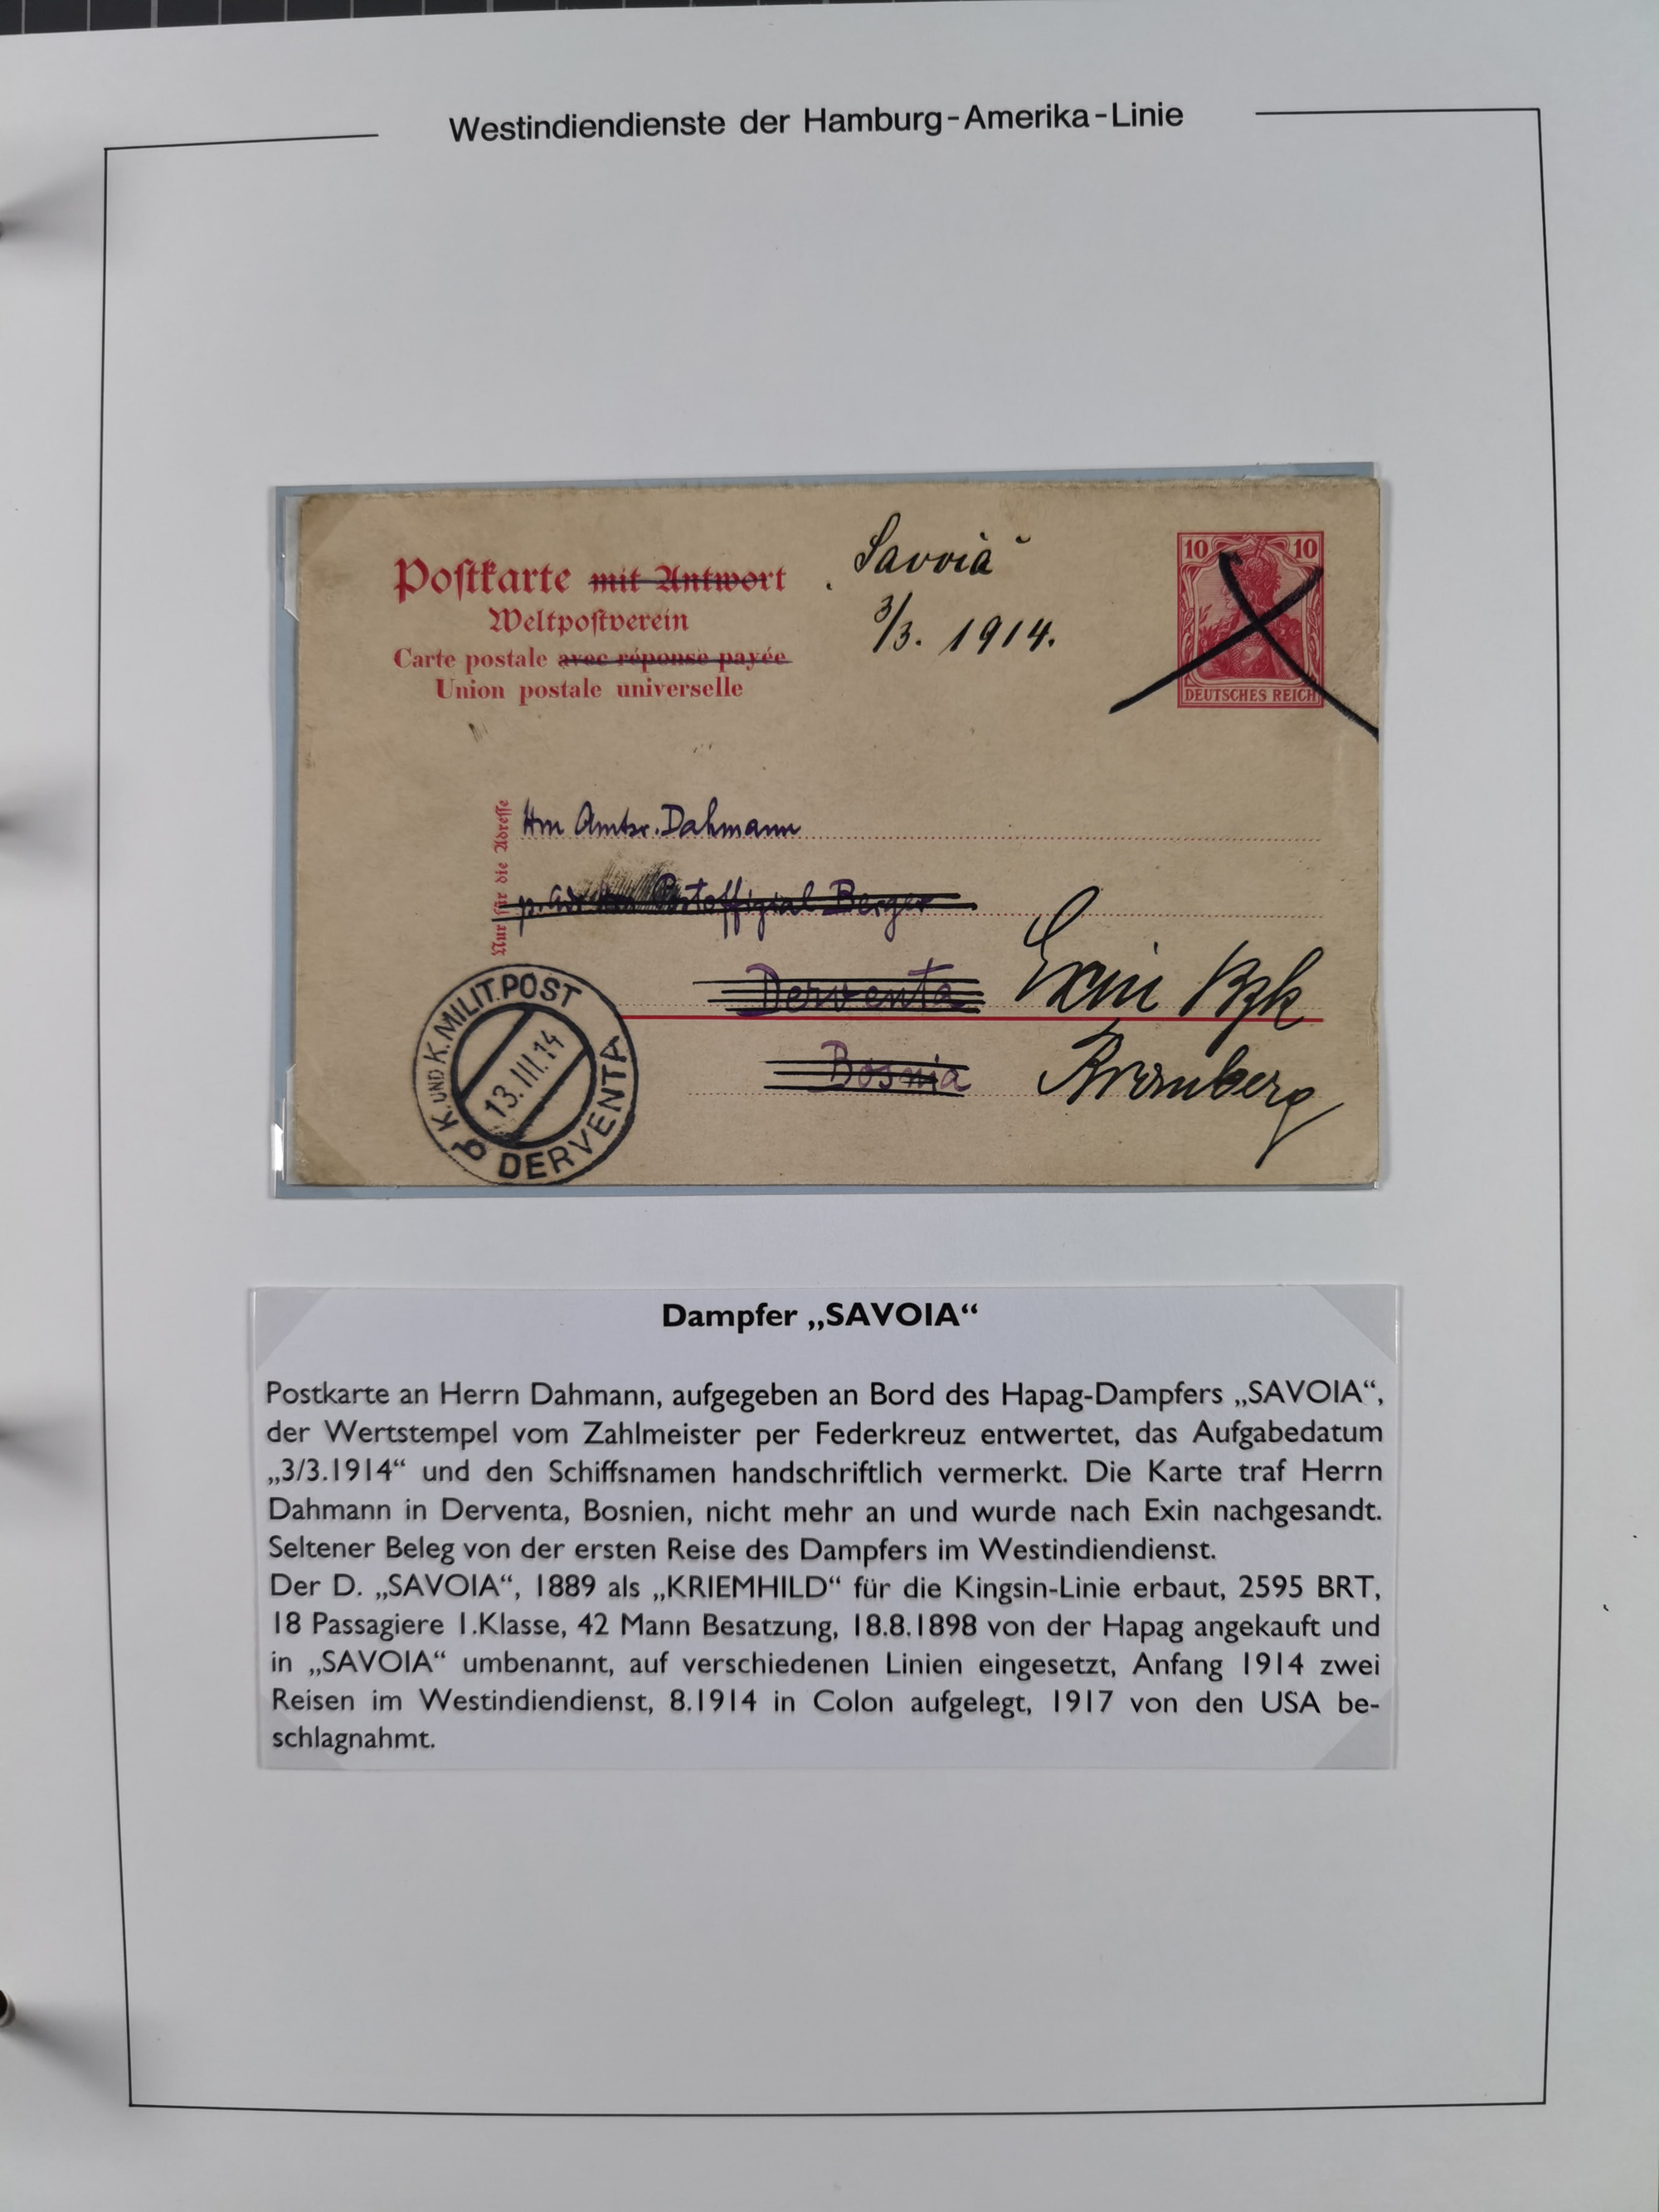 Westindiendienste der Hamburg-Amerika-Linie
Postkarte mit Antwort
Weltpostverein
Carte postale avec réponse payée
Union postale universelle
Savoia
3/3. 1914.
10 10
DEUTSCHES REICH
Nur für die Adresse
Hrn Amtsr. Dahmann
p. Adr Hrn Postoffizial Berger
Derventa
Exin Bzk
Bosnia
Bromberg
K. UND K. MILIT. POST
13.III.14
b DERVENTA
Dampfer „SAVOIA“
Postkarte an Herrn Dahmann, aufgegeben an Bord des Hapag-Dampfers „SAVOIA“,
der Wertstempel vom Zahlmeister per Federkreuz entwertet, das Aufgabedatum
„3/3.1914“ und den Schiffsnamen handschriftlich vermerkt. Die Karte traf Herrn
Dahmann in Derventa, Bosnien, nicht mehr an und wurde nach Exin nachgesandt.
Seltener Beleg von der ersten Reise des Dampfers im Westindiendienst.
Der D. „SAVOIA“, 1889 als „KRIEMHILD“ für die Kingsin-Linie erbaut, 2595 BRT,
18 Passagiere 1.Klasse, 42 Mann Besatzung, 18.8.1898 von der Hapag angekauft und
in „SAVOIA“ umbenannt, auf verschiedenen Linien eingesetzt, Anfang 1914 zwei
Reisen im Westindiendienst, 8.1914 in Colon aufgelegt, 1917 von den USA be-
schlagnahmt.